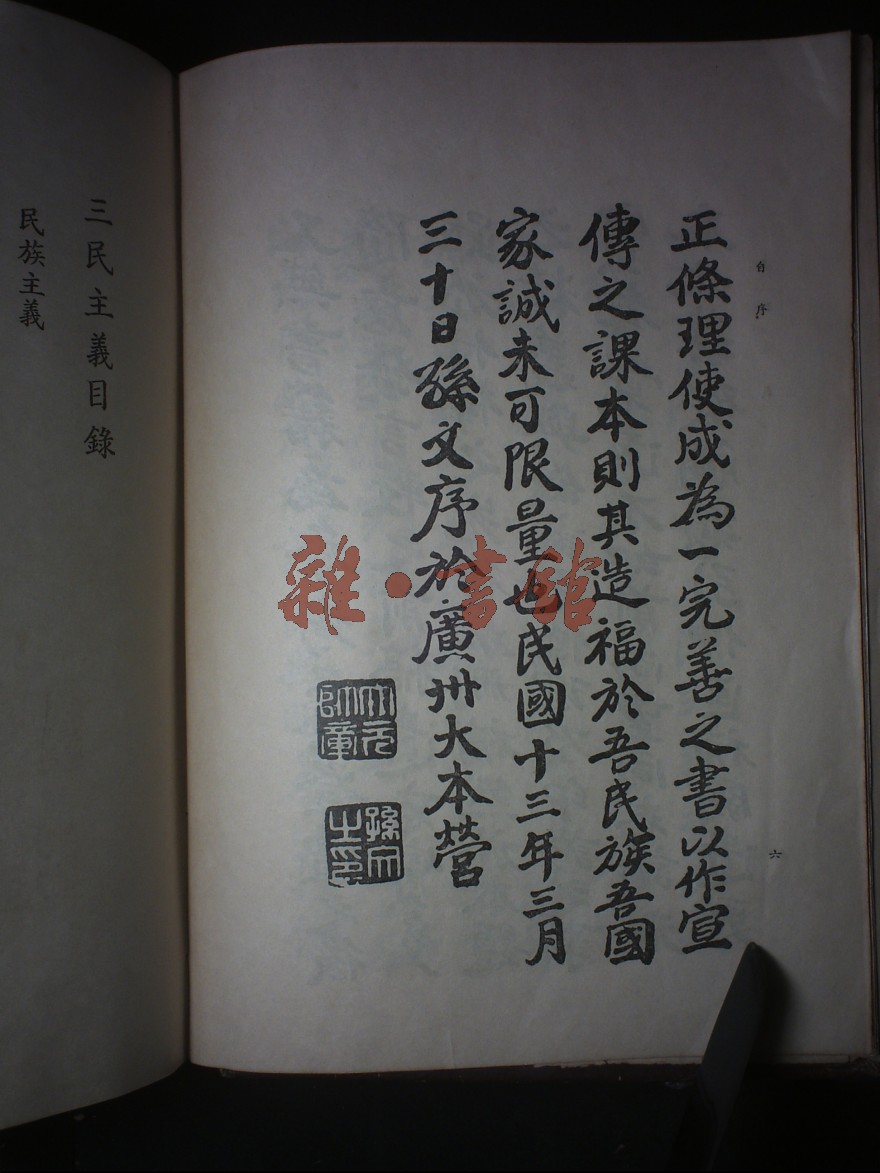 自序
正條理使成為一完善之書以作宣
傳之課本則其造福於吾民族吾國
家誠未可限量也民國十三年三月
三十日孫文序於廣州大本營
大元帥章
孫文之印
六
三民主義目錄
民族主義
雜·書館